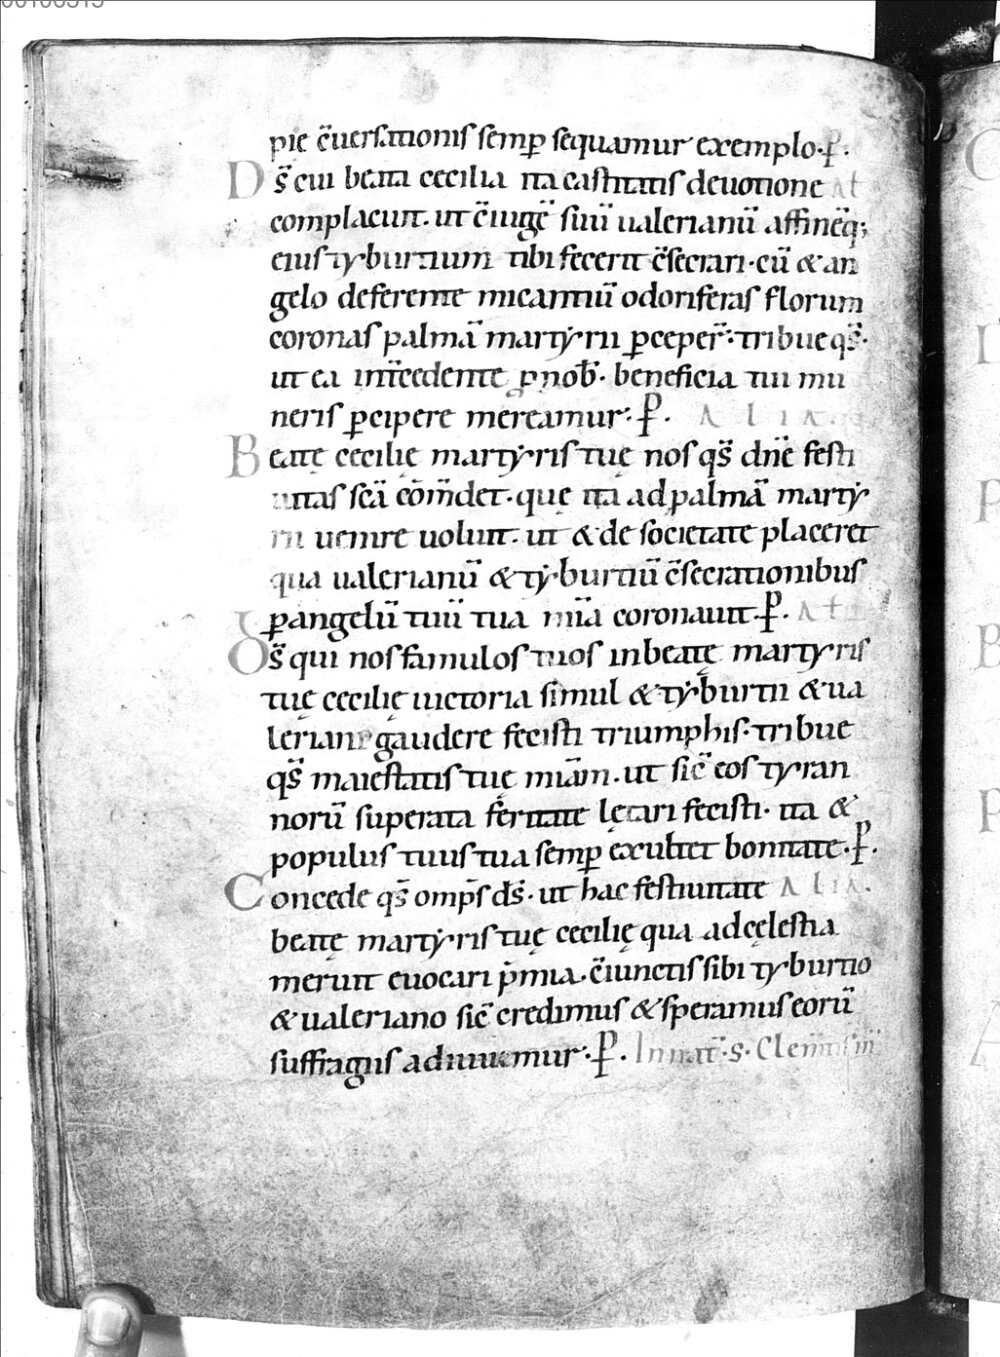 pie c̄uersationis semꝑ sequamur exemplo. P.
D s̄ cui beata cecilia ita castitatis deuotione At
complacuit. ut c̄iugē suū ualerianū affinēq;
eius tyburtium tibi fecerit c̄secrari. cū & an
gelo deferente micantiū odoriferas florum
coronas palmā martyrii ꝑceper̄. tribue qs̄.
ut ea int̄cedente ꝓ nob̄. beneficia tui mu
neris ꝑcipere mereamur. P. ALIA.
B eatę cecilię martyris tuę nos qs̄ dn̄e festi
uitas sc̄ā cōm̄det. quę ita ad palmā martẏ
rii uenire uoluit. ut & de societate placeret
qua ualerianū & tẏburtiū c̄secrationibus
ꝑ angelū tuū tua mīa coronauit. P. At
D s̄ qui nos famulos tuos in beatę martyris
tuę cecilię uictoria simul & tẏburtii & ua
leriani gaudere fecisti triumphis. tribue
qs̄ maiestatis tuę miām. ut sic̄ eos tyran
norū superata feritate lętari fecisti. ita &
populus tuus tua semꝑ exultet bonitate. P.
C oncede qs̄ omp̄s ds̄. ut hac festiuitate ALIA.
beatę martẏris tuę cecilię qua ad cęlestia
meruit euocari p̄mia. c̄iunctis sibi tyburtio
& ualeriano sic̄ credimus & speramus eorū
suffragiis adiuuemur. P. In nat̄. S. Clem̄tis